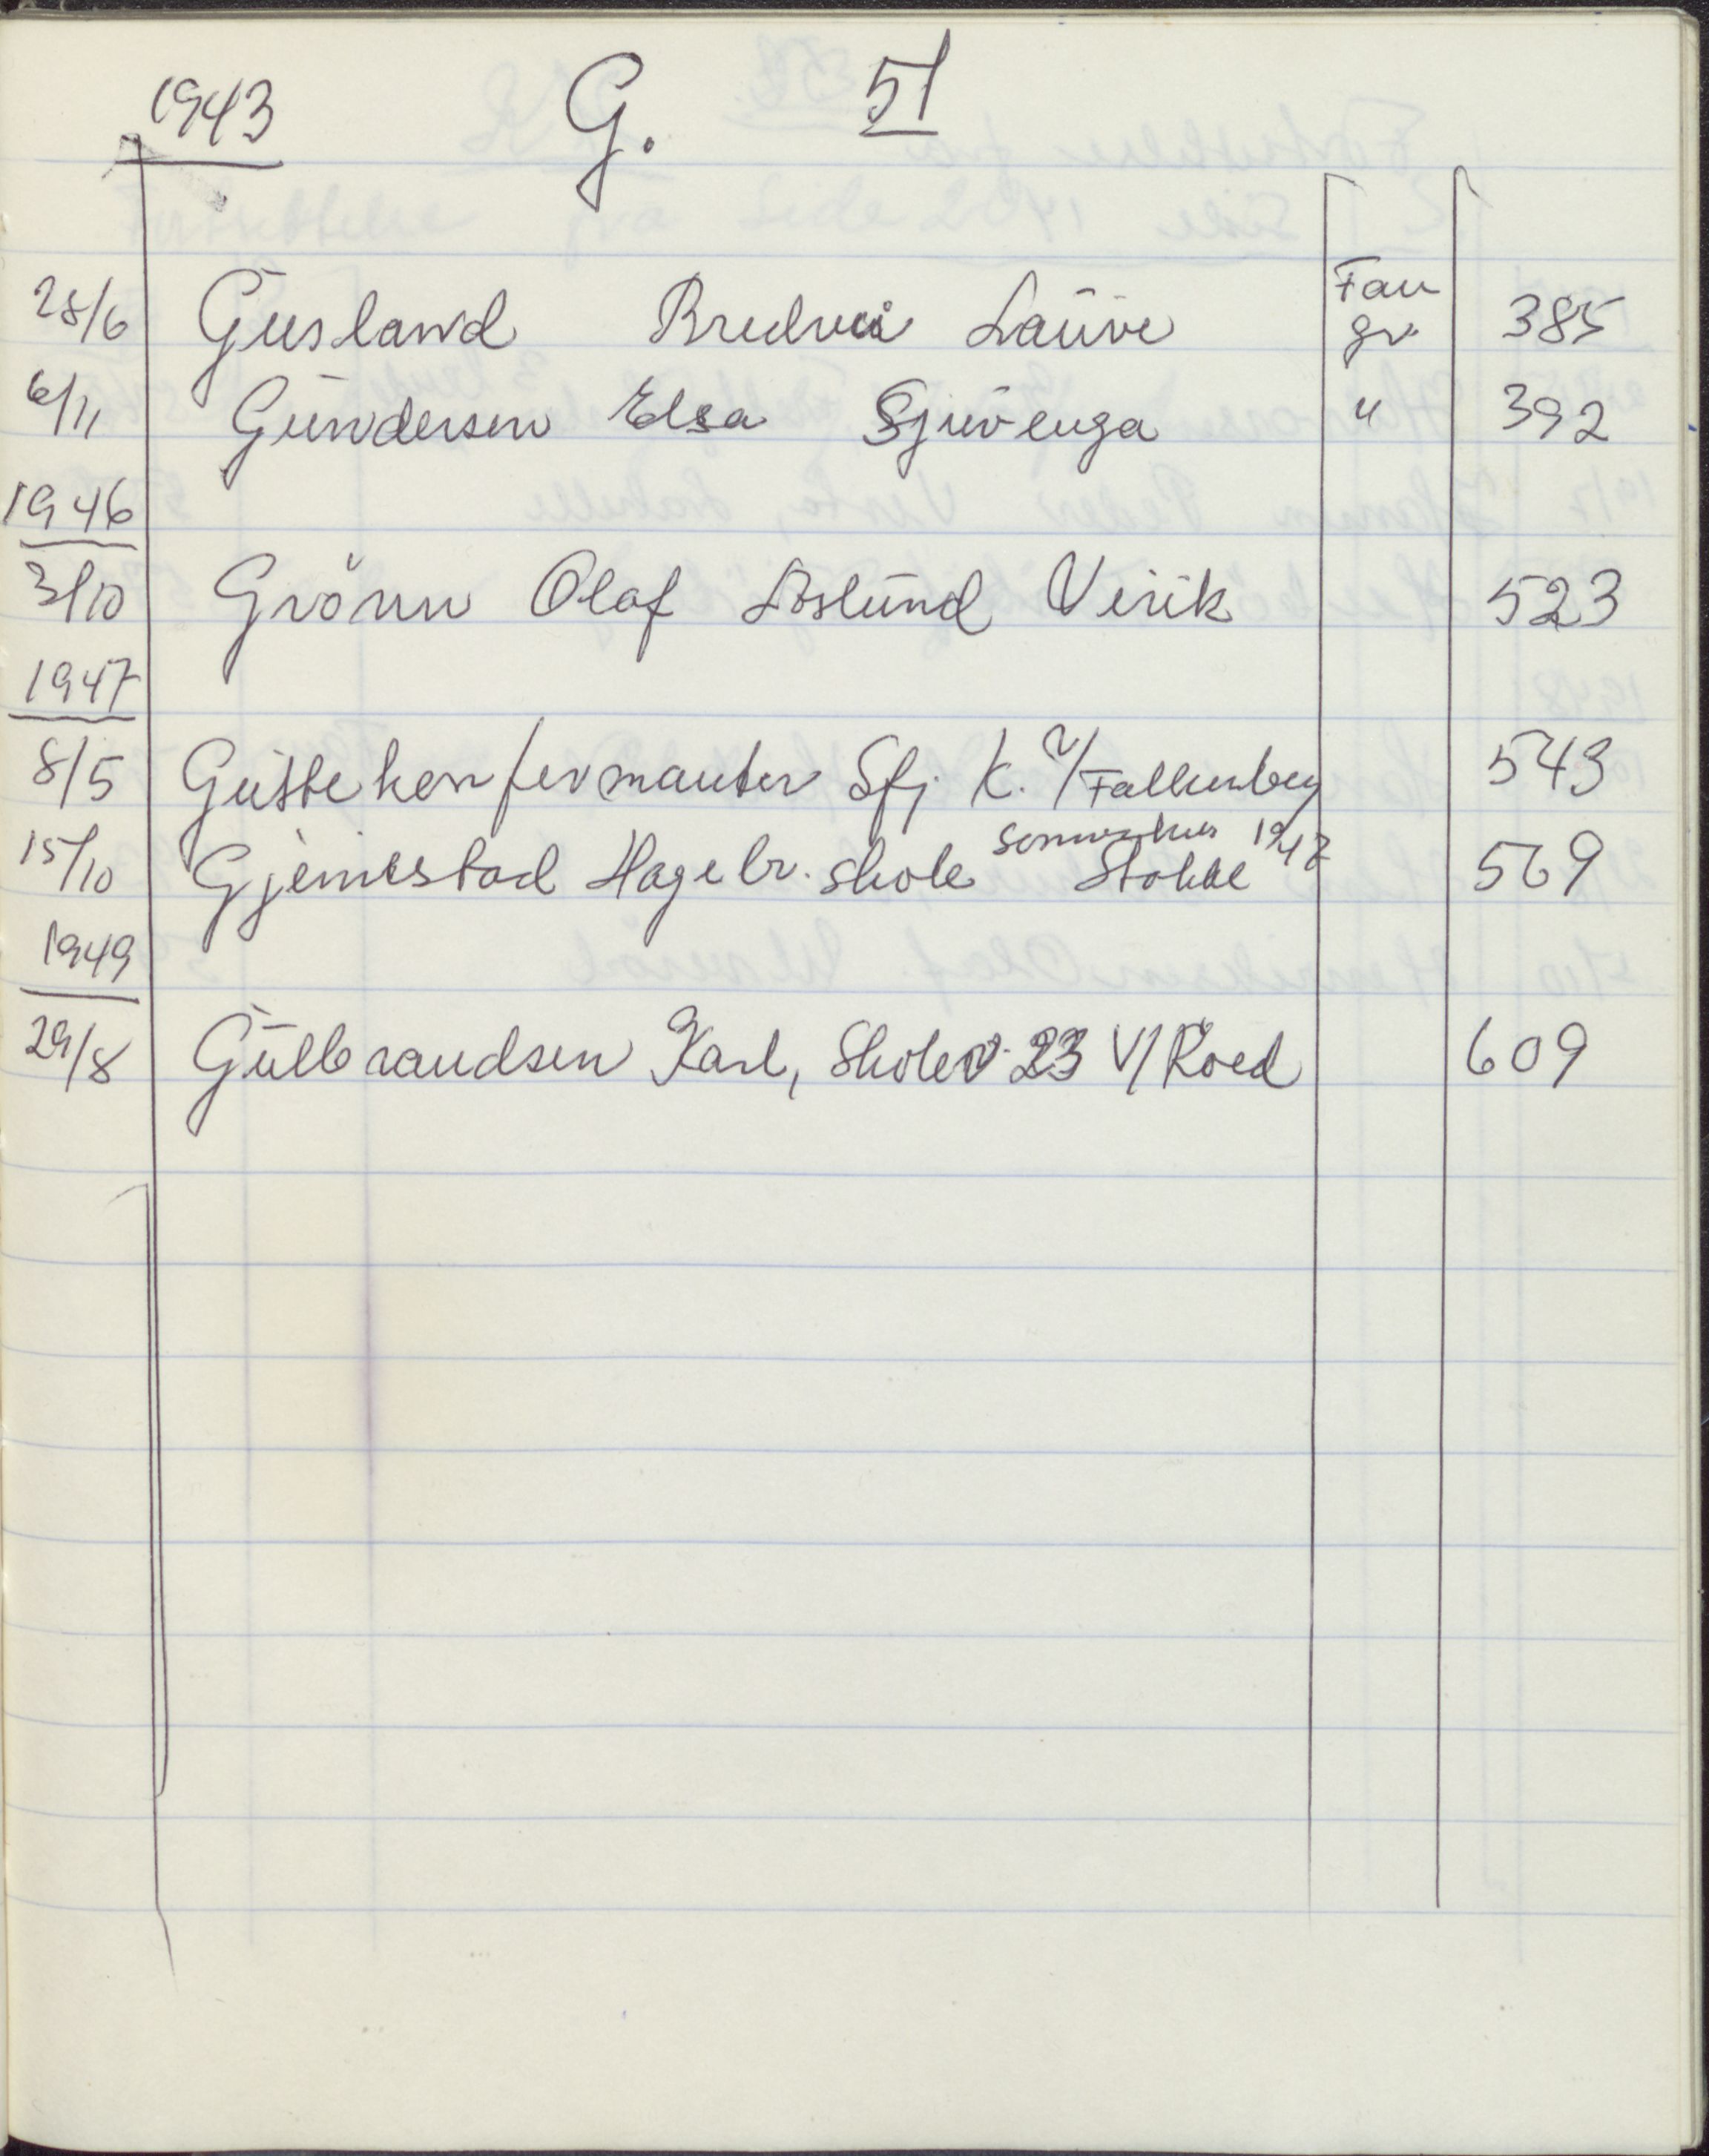 1943 G. 51
28/6 Gusland Bredvei Lauve Fam gr 385
6/11 Gundersen Elsa Sjuvenga " 392
1946
3/10 Grönn Olaf Aslund Virik 523
1947
8/5 Guttekonfermanter Sfj K. v/Falkenberg 543
15/10 Gjennestad Hagebr. skole Stokke 569
1949
29/8 Gulbrandsen Karl, Skolev. 23 V/Roed 609